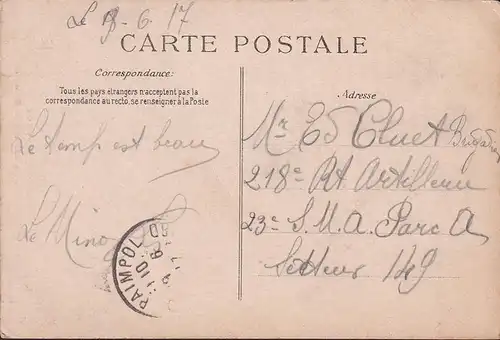 Le 9-6.17
CARTE POSTALE
Correspondance:
Tous les pays étrangers n'acceptent pas la
correspondance au recto, se renseigner à la Poste
Le temp est beau
Le
PAIMPOL
Adresse
Mr Ed Cluet Brigadier
218e Rt Artillerie
23e S.M.A. Parc A
Secteur 149